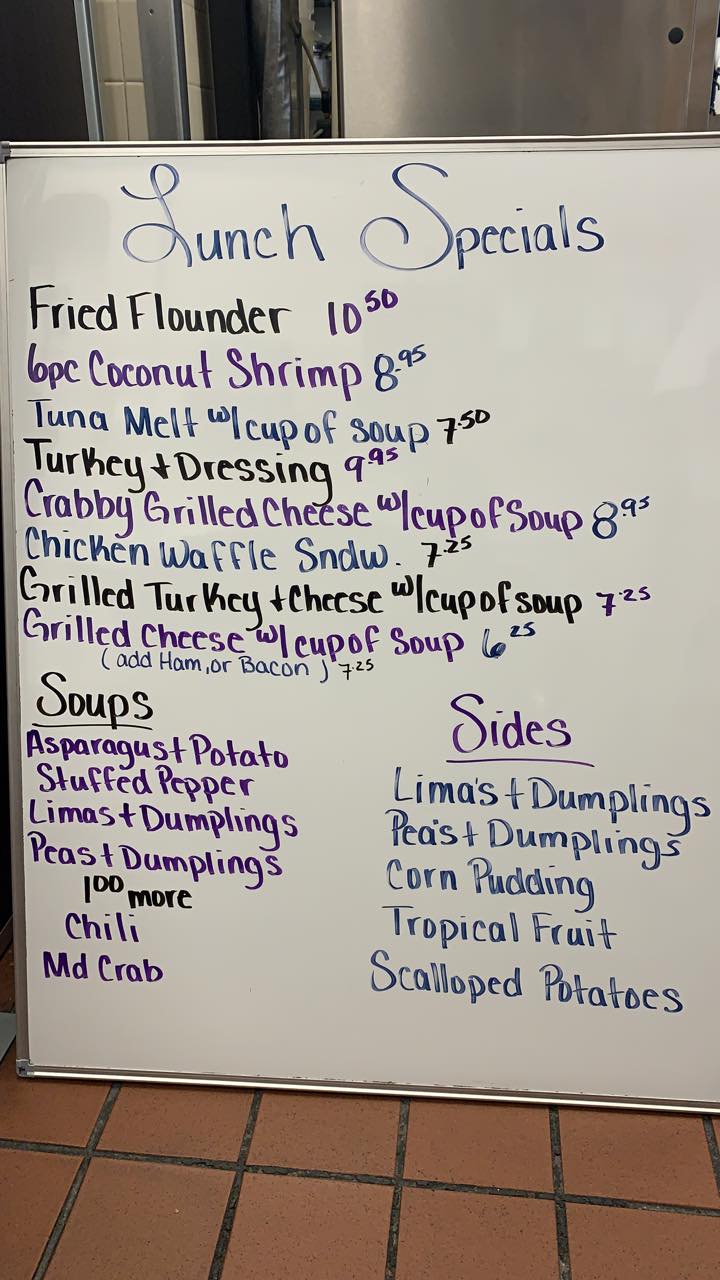 Lunch Specials
Fried Flounder 10 50
6pc Coconut Shrimp 8.95
Tuna Melt w/cup of soup 7.50
Turkey + Dressing 9.95
Crabby Grilled Cheese w/cup of Soup 8.95
Chicken Waffle Sndw. 7.25
Grilled Turkey + Cheese w/cup of soup 7.25
Grilled Cheese w/cup of Soup 6 25
(add Ham, or Bacon) 7.25
Soups
Asparagus + Potato
Stuffed Pepper
Limas + Dumplings
Peas + Dumplings
1 00 more
Chili
Md Crab
Sides
Lima's + Dumplings
Pea's + Dumplings
Corn Pudding
Tropical Fruit
Scalloped Potatoes